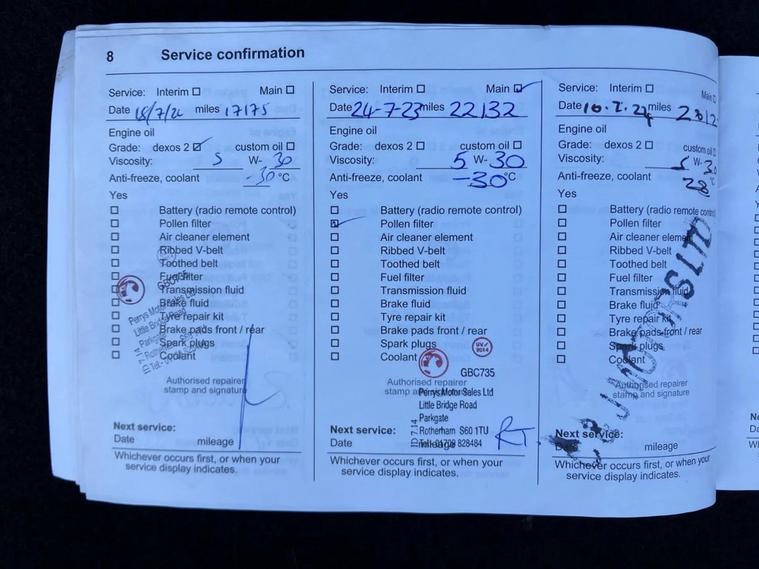 8 Service confirmation
Service: Interim Main
Date 18/7/2 miles 17175
Engine oil
Grade: dexos 2 custom oil
Viscosity: 5 W- 30
Anti-freeze, coolant -30 °C
Yes
Battery (radio remote control)
Pollen filter
Air cleaner element
Ribbed V-belt
Toothed belt
Fuel filter
Transmission fluid
Brake fluid
Tyre repair kit
Brake pads front / rear
Spark plugs
Coolant
Perrys Motor Sales Ltd
Little Bridge Road
Parkgate
Authorised repairer
stamp and signature
Next service:
Date mileage
Whichever occurs first, or when your
service display indicates.
Service: Interim Main
Date 24-7-23 miles 22132
Engine oil
Grade: dexos 2 custom oil
Viscosity: 5 W- 30
Anti-freeze, coolant -30 °C
Yes
Battery (radio remote control)
Pollen filter
Air cleaner element
Ribbed V-belt
Toothed belt
Fuel filter
Transmission fluid
Brake fluid
Tyre repair kit
Brake pads front / rear
Spark plugs
Coolant
GBC735
Authorised repairer
Perrys Motor Sales Ltd
Little Bridge Road
Parkgate
Rotherham S60 1TU
Tel: 01709 828484
RT
Next service:
Date mileage
Whichever occurs first, or when your
service display indicates.
Service: Interim Main
Date miles
Engine oil
Grade: dexos 2 custom oil
Viscosity: W- 30
Anti-freeze, coolant 28 °C
Yes
Battery (radio remote control)
Pollen filter
Air cleaner element
Ribbed V-belt
Toothed belt
Fuel filter
Transmission fluid
Brake fluid
Tyre repair kit
Brake pads front / rear
Spark plugs
Coolant
Authorised repairer
stamp and signature
Next service:
Date mileage
Whichever occurs first, or when your
service display indicates.